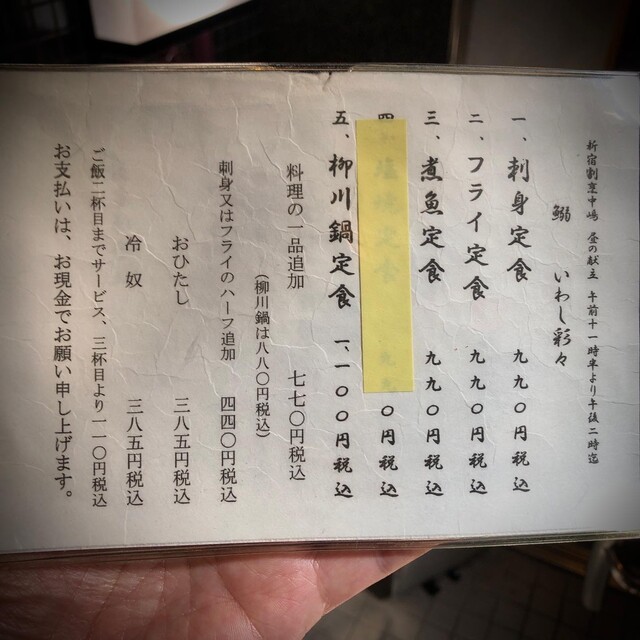 新宿割烹中嶋 昼の献立 午前十一時半より午後二時迄
鰯 いわし彩々
一、刺身定食 九九〇円税込
二、フライ定食 九九〇円税込
三、煮魚定食 九九〇円税込
四、塩焼定食 〇円税込
五、柳川鍋定食 一、一〇〇円税込
料理の一品追加 七七〇円税込
(柳川鍋は八八〇円税込)
刺身又はフライのハーフ追加 四四〇円税込
おひたし 三八五円税込
冷奴 三八五円税込
ご飯二杯目までサービス、三杯目より一一〇円税込
お支払いは、お現金でお願い申し上げます。